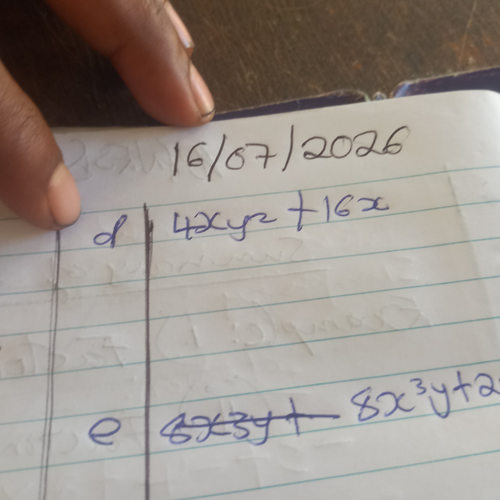 16/07/2026
d 4xyz + 16x
e 8x3y+ 8x³y+2